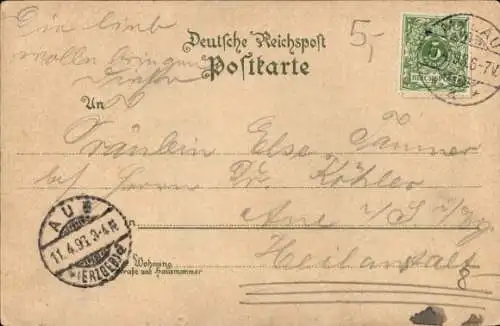 Die lieb
wollen bringen
5,-
Deutsche Reichspost
Postkarte
5
REICHSPOST
6-7V
An
Fräulein Else Tanner
bei Herrn Dr. Köhler
Aue i/S. i/Erzg.
Heilanstalt
8
AUE
11.4.99.3-4N
(ERZGEB)
Wohnung
Straße und Hausnummer